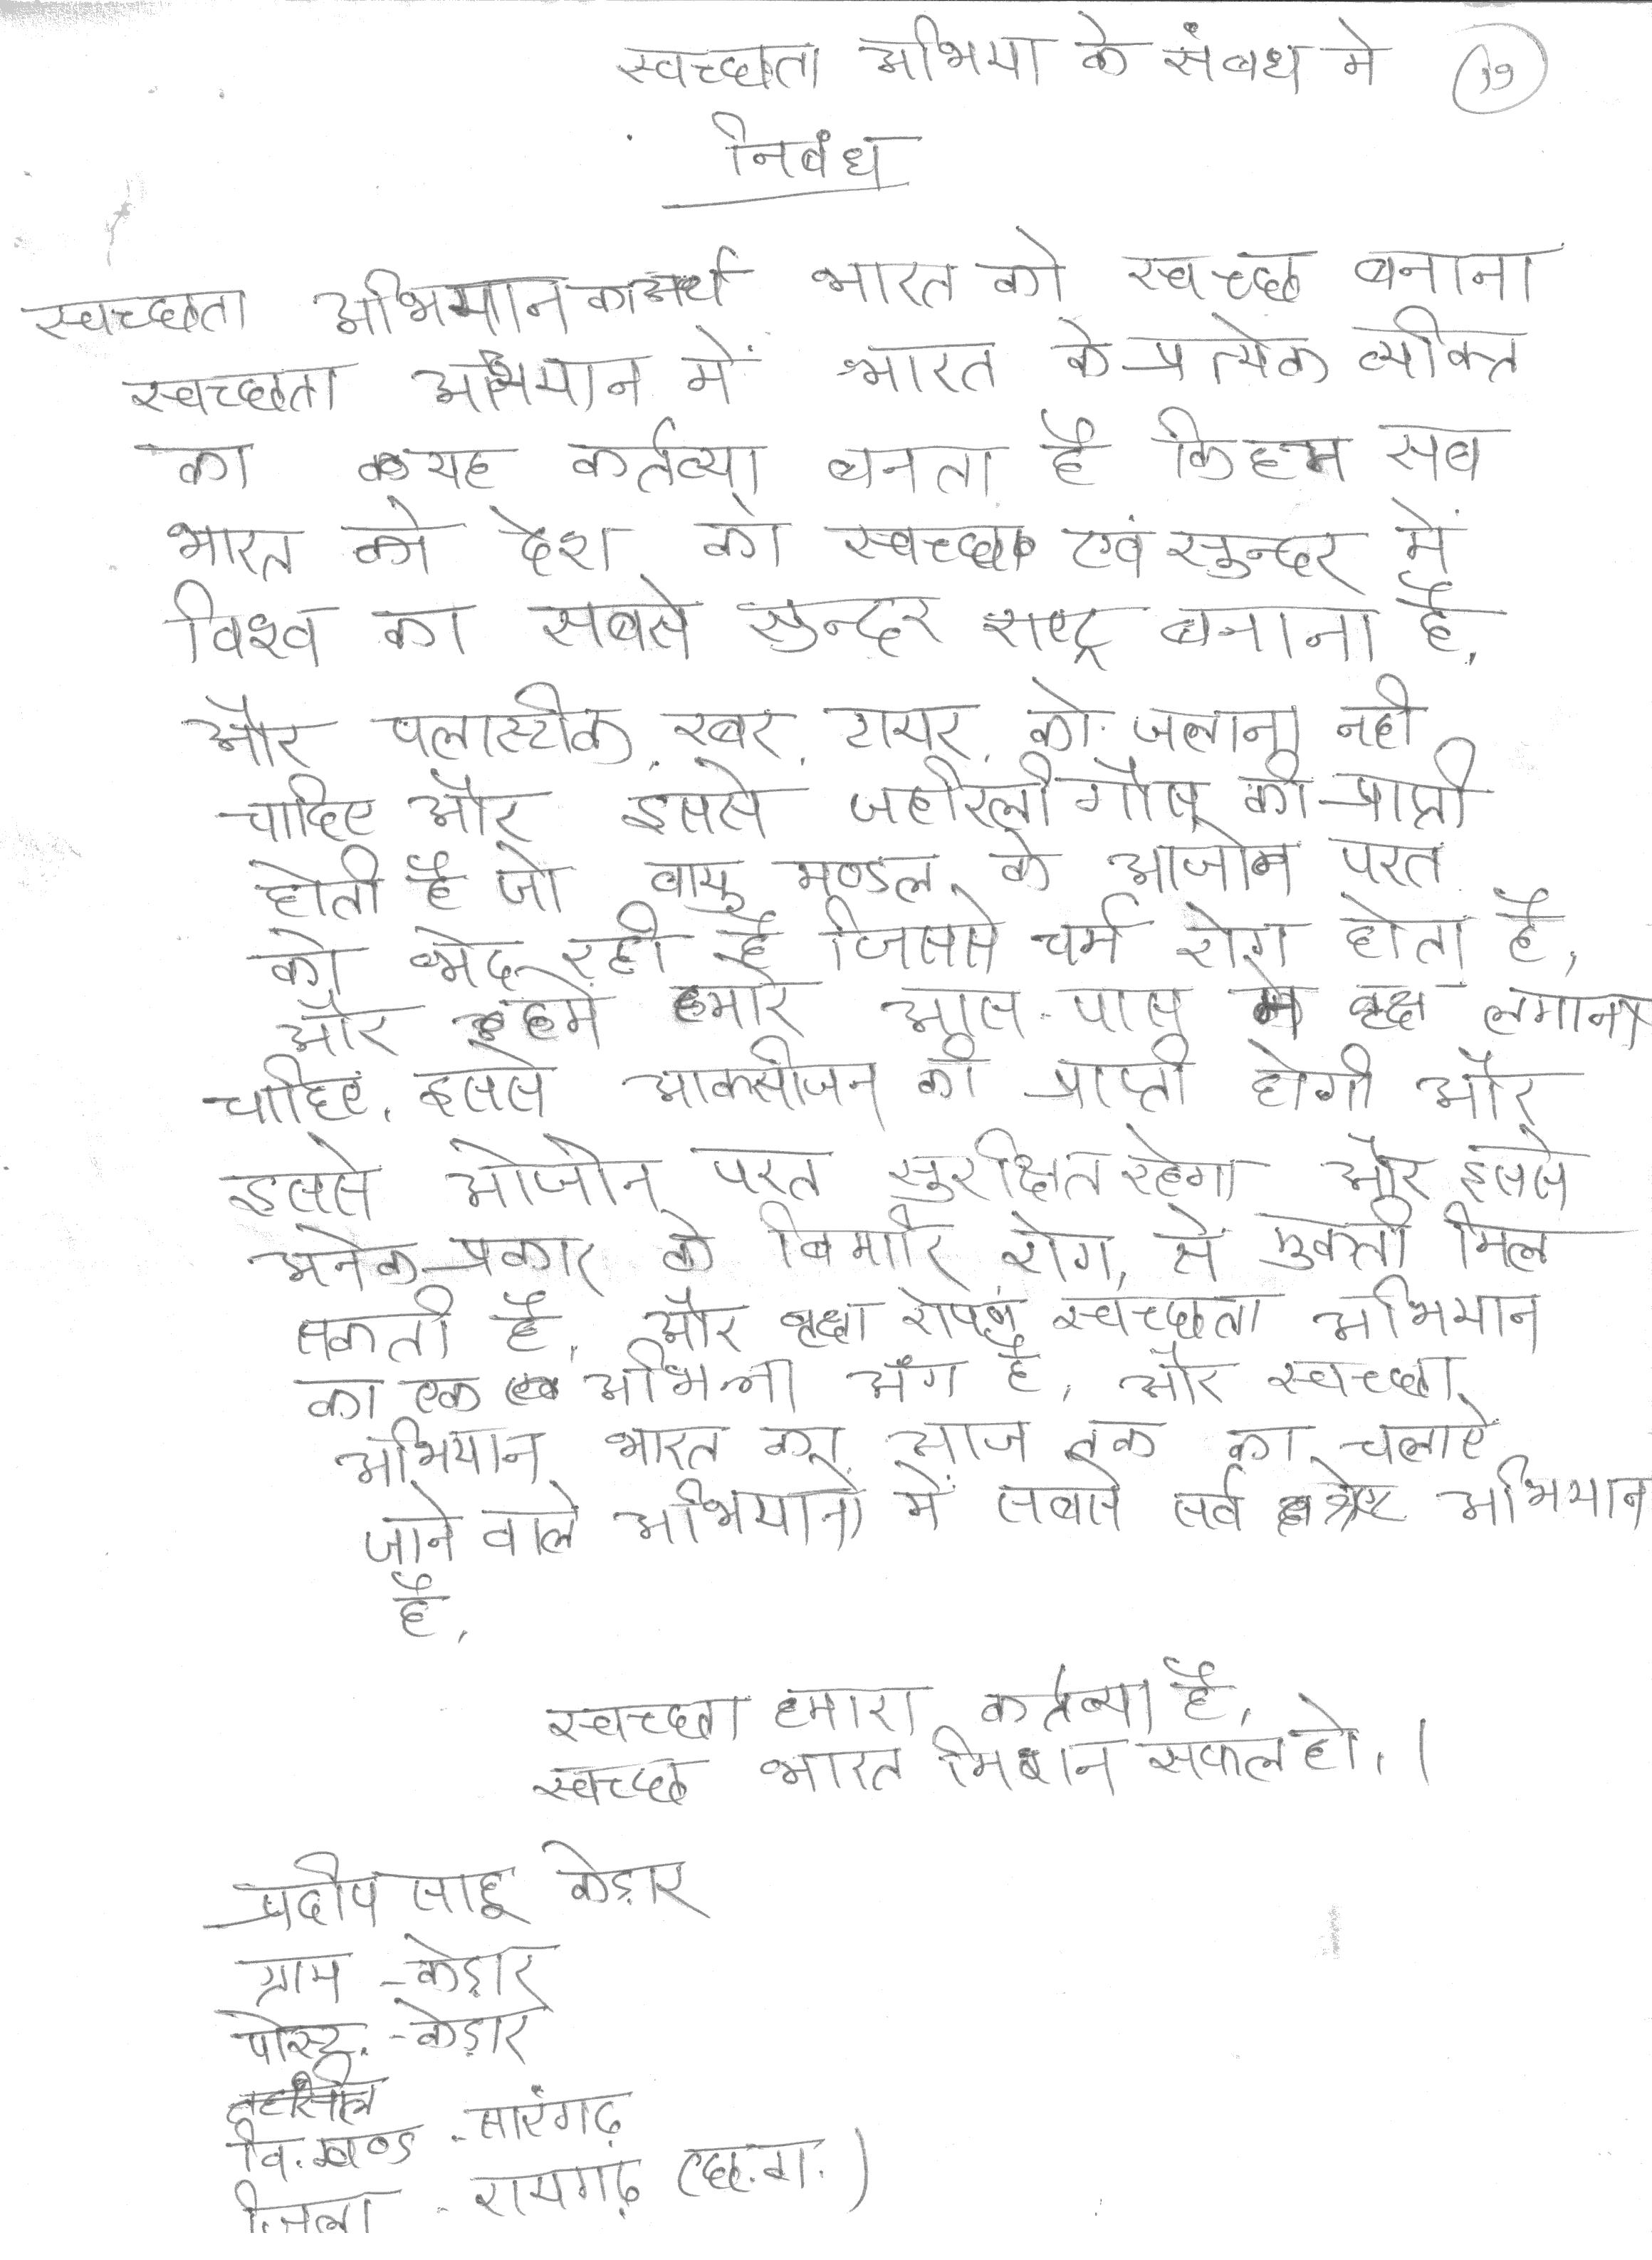 स्वच्छता अभिया के संबध मे
१७
निबंध
स्वच्छता अभियान का अर्थ भारत को स्वच्छ बनाना
स्वच्छता अभियान में भारत के प्रत्येक व्यक्ति
का यह कर्तव्या बनता है कि हम सब
भारत को देश को स्वच्छ एवं सुन्दर में
विश्व का सबसे सुन्दर राष्ट्र बनाना है,
और पलास्टीक, रबर, टायर, को जलाना नही
चाहिए और इससे जहरिली गैस की प्राप्ती
होती है जो वायु मण्डल के आजोन परत
को भेद रही है जिससे चर्म रोग होता है,
और हमे हमारे आस-पास मे वृक्ष लगाना
चाहिए, इससे आक्सीजन की प्राप्ती होगी और
इससे ओजोन परत सुरक्षित रहेगा और इससे
अनेक प्रकार के बिमारि रोग, से मुक्ती मिल
सकती है, और वृक्षा रोपण स्वच्छता अभियान
का एक अभिन्न अंग है, और स्वच्छा
अभियान भारत का आज तक का चलाऐ
जाने वाले अभियानो में सबसे सर्व श्रेष्ट अभियान
है,
स्वच्छा हमारा कर्तव्या है,
स्वच्छ भारत मिशन सफल हो, ।
प्रदीप साहू केड़ार
ग्राम - केड़ार
पोस्ट - केड़ार
तहसील
वि. खण्ड - सारंगढ़
जिला - रायगढ़ (छ.ग.)